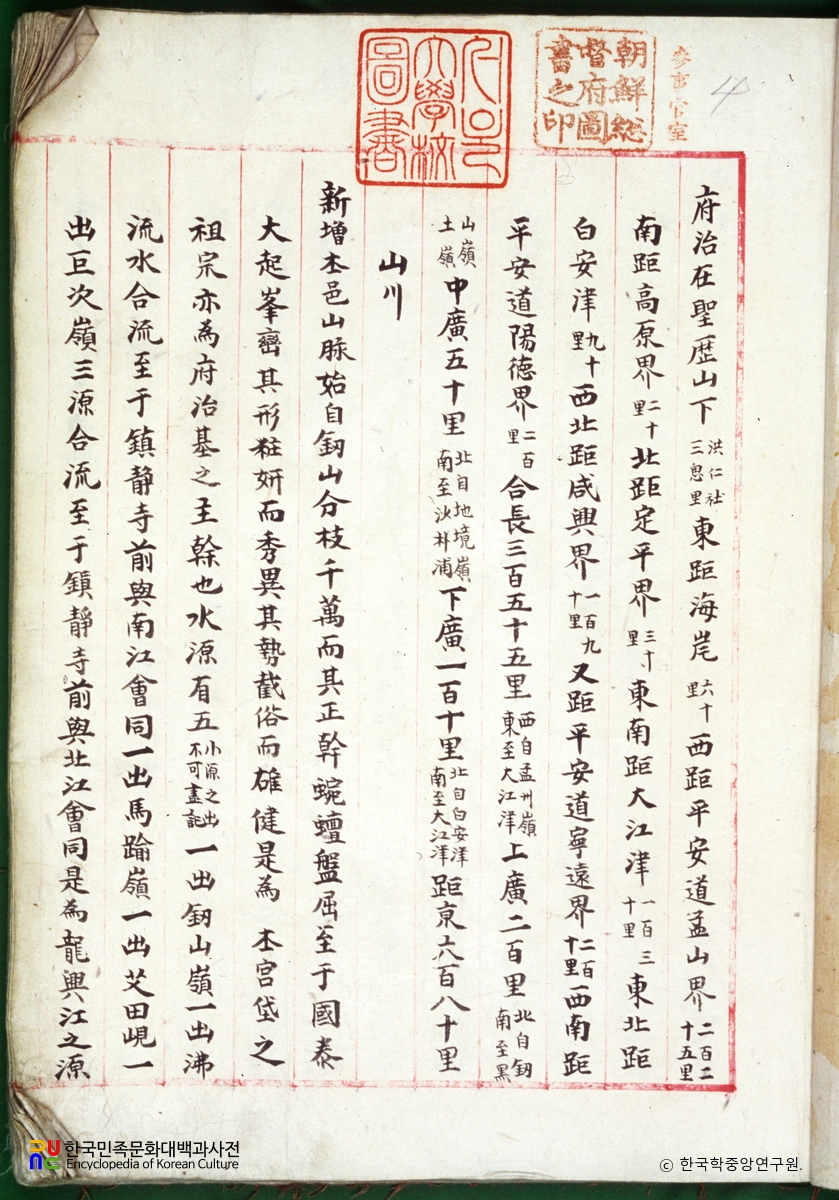 參事官室
朝鮮總
督府圖
書之印
大學校
圖書
府治在聖歷山下洪仁社三息里東距海岸六十里西距平安道孟山界二百二十五里
南距高原界二十里北距定平界三十里東南距大江津一百三十里東北距
白安津九十里西北距咸興界一百九十里又距平安道寧遠界二百十里西南距
平安道陽德界二百里合長三百五十五里西自孟州嶺東至大江津上廣二百里北自釰南至黑
山嶺土嶺中廣五十里北自地境嶺南至沙朴浦下廣一百十里北自白安津南至大江津距京六百八十里
山川
新增本邑山脉始自釰山分枝千萬而其正幹蜿蟺盤屈至于國泰
大起峯巒其形粧姸而秀異其勢截俗而雄健是為 本宮岱之
祖宗亦為府治基之主幹也水源有五小源之出不可盡記一出釰山嶺一出沸
流水合流至于鎮靜寺前與南江會同一出馬踰嶺一出艾田峴一
出巨次嶺三源合流至于鎮靜寺前與北江會同是為龍興江之源
한국민족문화대백과사전
Encyclopedia of Korean Culture
ⓒ 한국학중앙연구원.